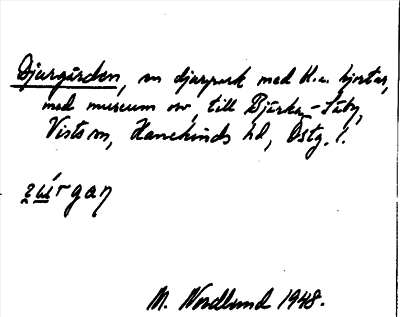 Djurgården, en djurpark med bl.a. hjortar,
med museum ov, till Bjärka-Säby,
Vists sn, Hanekinds hd, Östg. l.
M. Nordlund 1948.